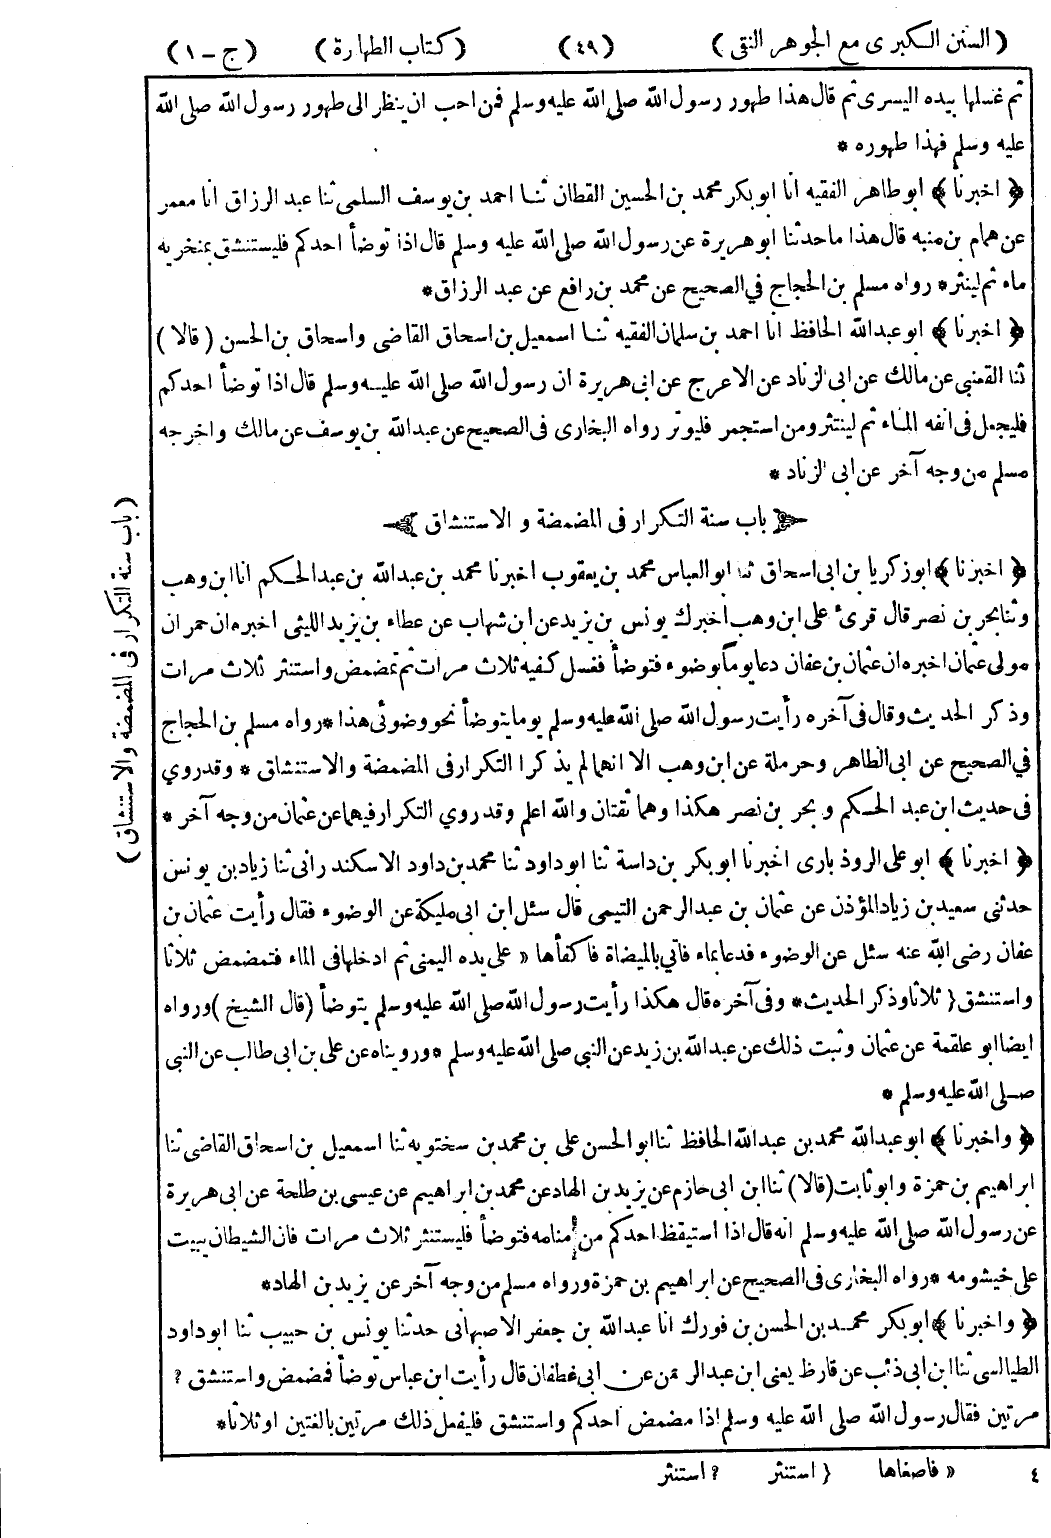 (السنن الكبرى مع الجوهر النقى) (٤٩) (كتاب الطهارة) (ج - ١)
ثم غسلها بيده اليسرى ثم قال هذا طهور رسول الله صلى الله عليه وسلم فمن احب ان ينظر الى طهور رسول الله صلى الله
عليه وسلم فهذا طهوره *
﴿ اخبرنا ﴾ ابو طاهر الفقيه انا ابو بكر محمد بن الحسين القطان ثنا احمد بن يوسف السلمى ثنا عبد الرزاق انا معمر
عن همام بن منبه قال هذا ما حدثنا ابو هريرة عن رسول الله صلى الله عليه وسلم قال اذا توضأ احدكم فليستنشق بمنخريه
ماء ثم لينثر * رواه مسلم بن الحجاج في الصحيح عن محمد بن رافع عن عبد الرزاق *
﴿ اخبرنا ﴾ ابو عبد الله الحافظ انا احمد بن سلمان الفقيه ثنا اسمعيل بن اسحاق القاضى واسحاق بن الحسن (قالا)
ثنا القعنبى عن مالك عن ابى الزناد عن الاعرج عن ابى هريرة ان رسول الله صلى الله عليه وسلم قال اذا توضأ احدكم
فليجعل فى انفه الماء ثم لينتثر ومن استجمر فليوتر رواه البخارى فى الصحيح عن عبد الله بن يوسف عن مالك واخرجه
مسلم من وجه آخر عن ابى الزناد *
باب سنة التكرار فى المضمضة و الاستنشاق
﴿ اخبرنا ﴾ ابو زكريا بن ابى اسحاق ثنا ابو العباس محمد بن يعقوب اخبرنا محمد بن عبد الله بن عبد الحكم انا ابن وهب
وثنا بحر بن نصر قال قرئ على ابن وهب اخبرك يونس بن يزيد عن ابن شهاب عن عطاء بن يزيد الليثى اخبره ان حمران
مولى عثمان اخبره ان عثمان بن عفان دعا يوما بوضوء فتوضأ فغسل كفيه ثلاث مرات ثم تمضمض واستنثر ثلاث مرات
وذكر الحديث وقال فى آخره رأيت رسول الله صلى الله عليه وسلم يوما يتوضأ نحو وضوئى هذا * رواه مسلم بن الحجاج
في الصحيح عن ابى الطاهر وحرملة عن ابن وهب الا انهما لم يذكرا التكرار فى المضمضة والاستنشاق * وقد روي
فى حديث ابن عبد الحكم و بحر بن نصر هكذا وهما ثقتان والله اعلم وقد روي التكرار فيهما عن عثمان من وجه آخر *
﴿ اخبرنا ﴾ ابو على الروذبارى اخبرنا ابو بكر بن داسة ثنا ابو داود ثنا محمد بن داود الاسكندرانى ثنا زياد بن يونس
حدثنى سعيد بن زياد المؤذن عن عثمان بن عبد الرحمن التيمى قال سئل ابن ابى مليكة عن الوضوء فقال رأيت عثمان بن
عفان رضى الله عنه سئل عن الوضوء فدعا بماء فاتي بالميضاة فأكفأها « على يده اليمنى ثم ادخلها فى الماء فتمضمض ثلاثا
واستنشق { ثلاثا وذكر الحديث * وفى آخره قال هكذا رأيت رسول الله صلى الله عليه وسلم يتوضأ (قال الشيخ) ورواه
ايضا ابو علقمة عن عثمان وثبت ذلك عن عبد الله بن زيد عن النبي صلى الله عليه وسلم * وروينا ه عن على بن ابى طالب عن النبى
صلى الله عليه وسلم *
﴿ واخبرنا ﴾ ابو عبد الله محمد بن عبد الله الحافظ ثنا ابو الحسن على بن محمد بن سختويه ثنا اسمعيل بن اسحاق القاضى ثنا
ابراهيم بن حمزة وابو ثابت (قالا) ثنا ابن ابى حازم عن يزيد بن الهاد عن محمد بن ابراهيم عن عيسى بن طلحة عن ابى هريرة
عن رسول الله صلى الله عليه وسلم انه قال اذا استيقظ احدكم من منامه فتوضأ فليستنثر ثلاث مرات فان الشيطان يبيت
على خيشومه * رواه البخارى فى الصحيح عن ابراهيم بن حمزة ورواه مسلم من وجه آخر عن يزيد بن الهاد *
﴿ واخبرنا ﴾ ابو بكر محمد بن الحسن بن فورك انا عبد الله بن جعفر الاصبهانى حدثنا يونس بن حبيب ثنا ابو داود
الطيالسى ثنا ابن ابى ذئب عن قارظ يعنى ابن عبد الرحمن عن ابى غطفان قال رأيت ابن عباس توضأ فمضمض واستنشق ?
مرتين فقال رسول الله صلى الله عليه وسلم اذا مضمض احدكم واستنشق فليفعل ذلك مرتين بالغتين او ثلاثا *
(باب سنة التكرار فى المضمضة والاستنشاق)
٤ « فاصغاها { استنثر ? استنثر